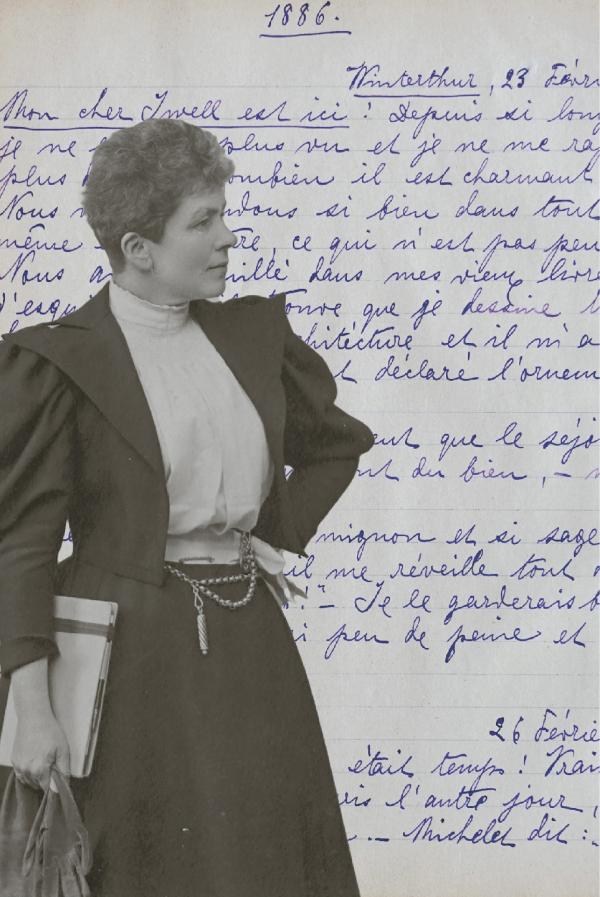 1886.
Winterthur, 23 Févri
Mon cher Iwell est ici! Depuis si long
je ne plus vu et je ne me rap
plus combien il est charmant
Nous si bien dans tout
même ce qui n'est pas peu
Nous dans mes vieux livre
d'esqui trouve que je dessine
architecture et il m'a
déclaré l'ornem
que le séjo
du bien, –
mignon et si sage
il me réveille tout
!"– Je le garderais b
peu de peine et
26 Février
était temps! Vrai
l'autre jour,
. – Michelet dit :